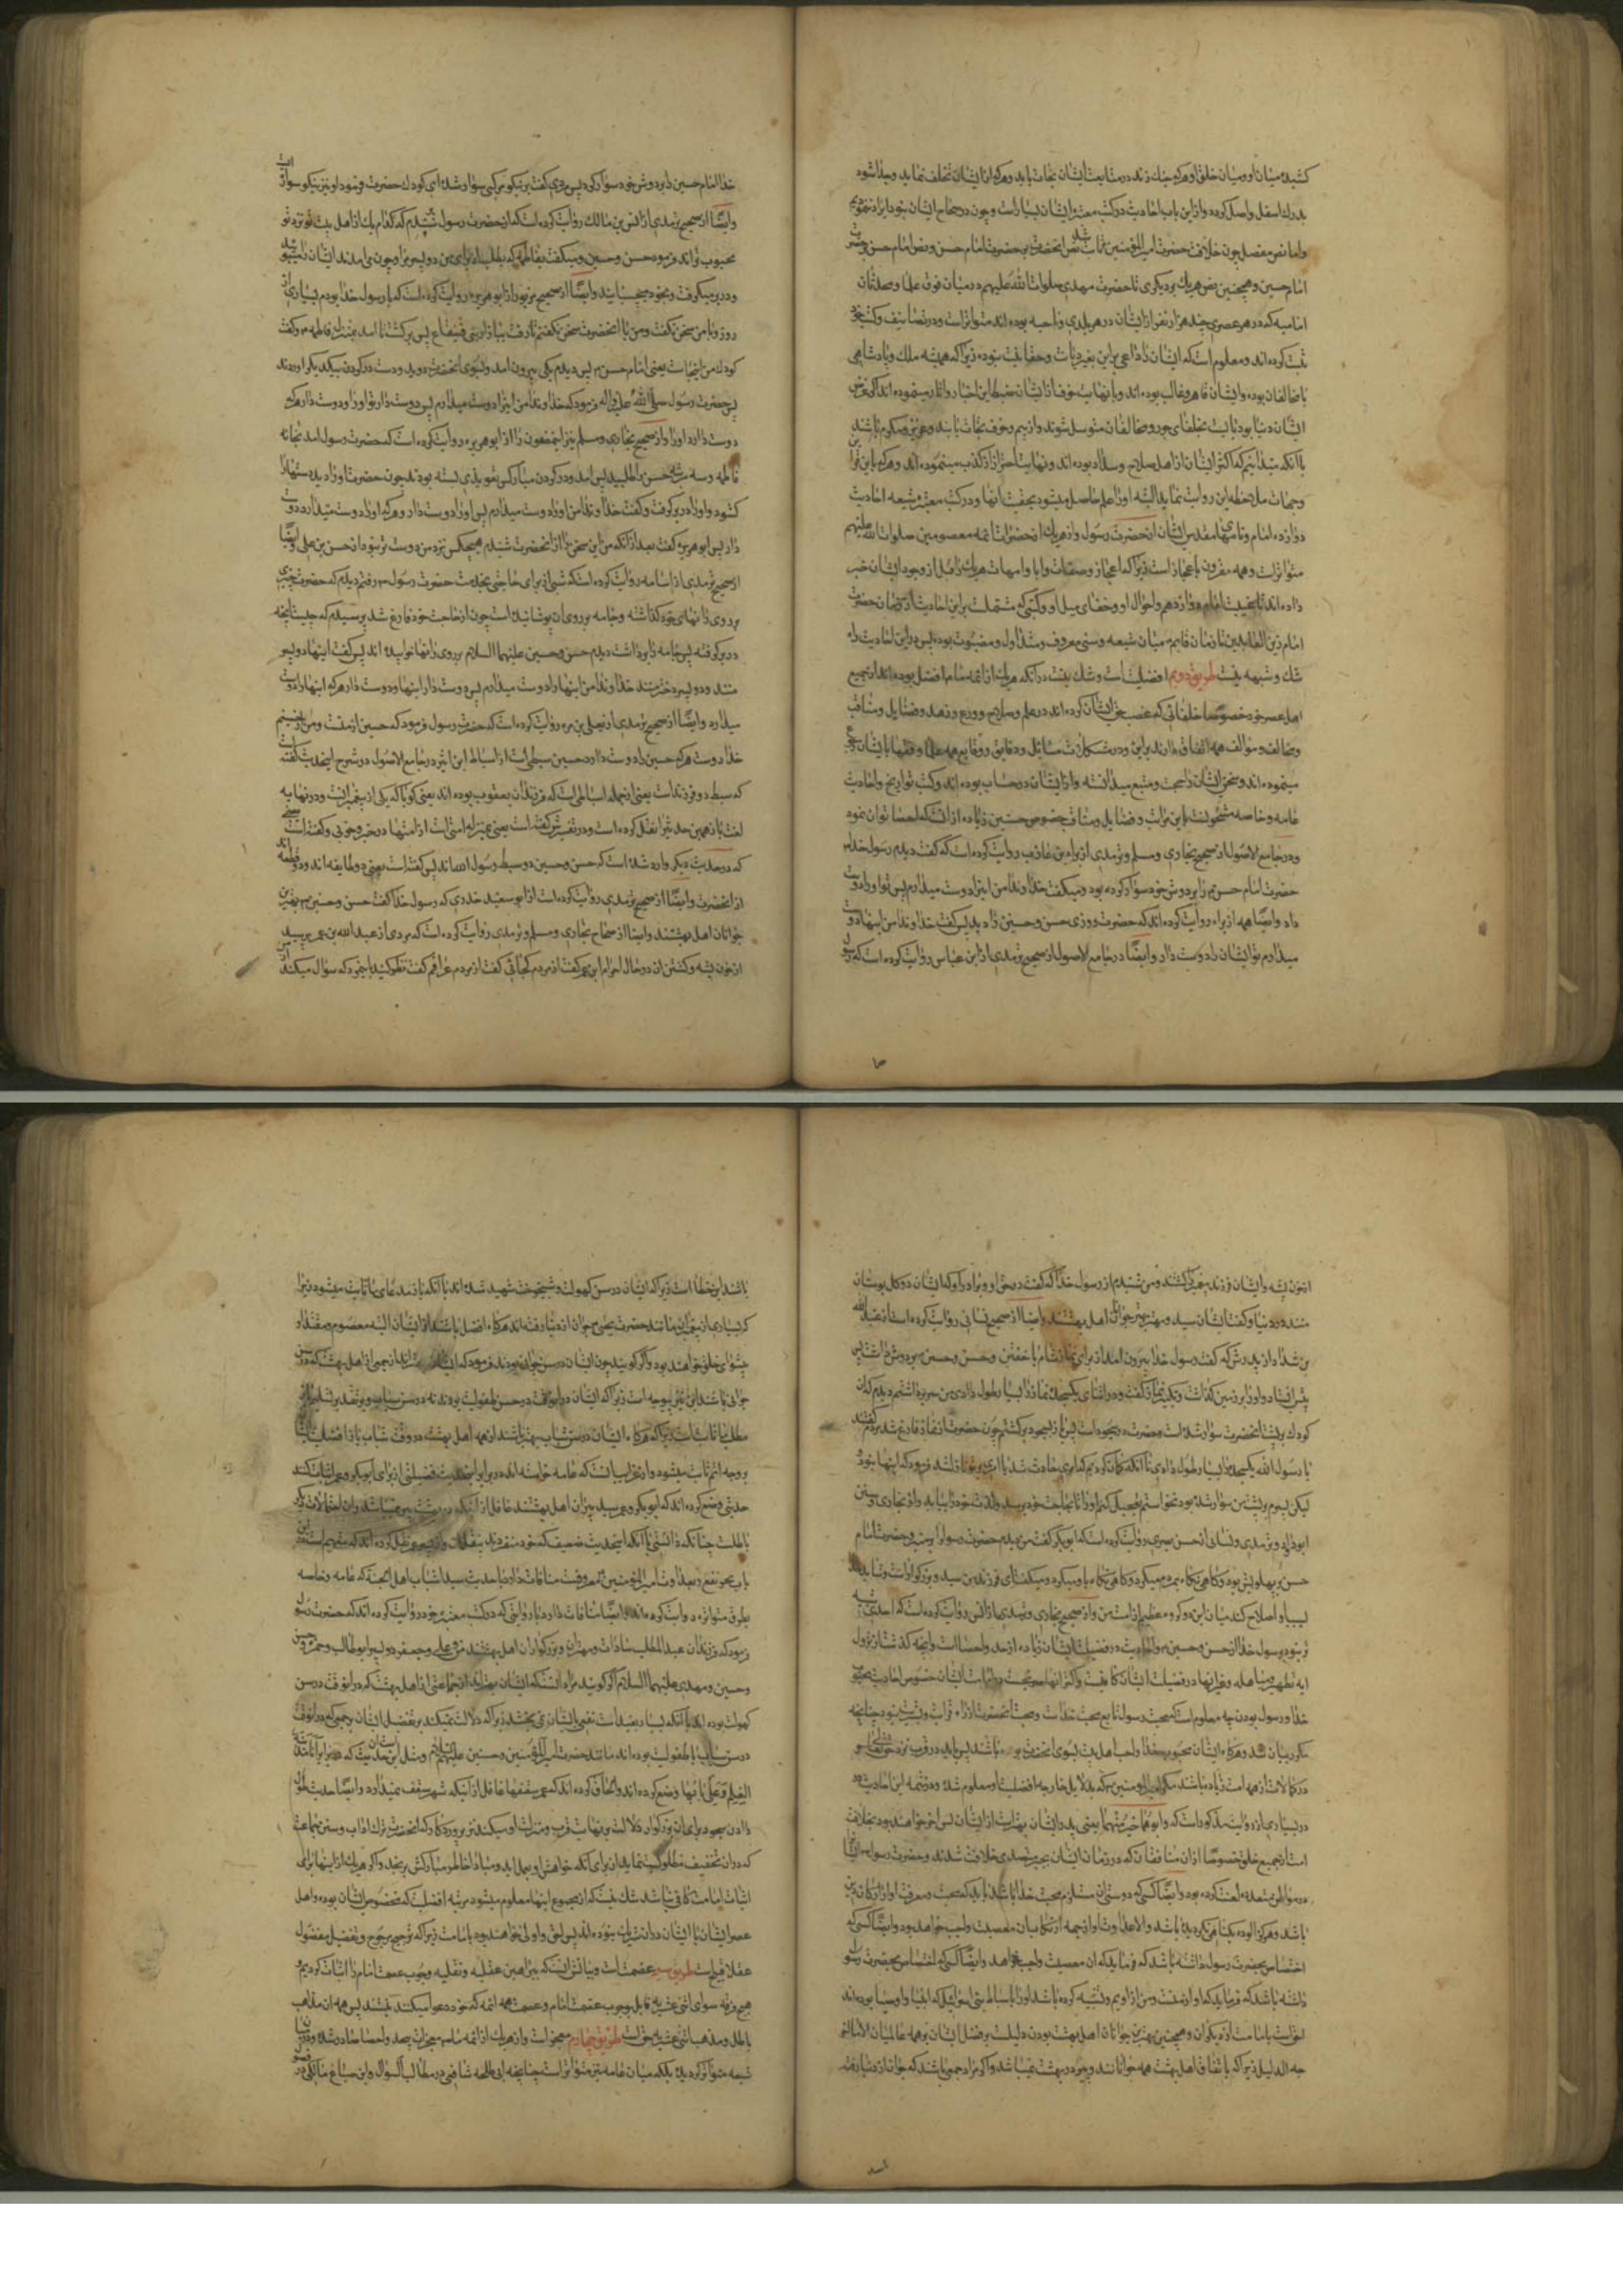 کشیده میان او و میان خلق و هرکه چنك زند در متابعت ایشان نجات یابد و هرکه از ایشان تخلف نماید
بدرك اسفل واصل کرده و از این باب احادیث در کتب معتبره ایشان بسیار است و چون در صحاح ایشان بود ایراد نمودیم
و اما نص مفصل چون خلافت حضرت امیر المؤمنین ثابت شد نص انحضرت بر حضرت امام حسن و نص امام حسن بر حضرت
امام حسین و همچنین نص هریك بر دیکری تا حضرت مهدی صلوات الله علیهم در میان فرق علما و محدثان
امامیه که در هر عصری چند هزار نفر از ایشان در هر بلدی و ناحیه بوده اند متواتر است و در تصانیف و کتب خود
ثبت کرده اند و معلوم است که ایشان را داعی بر این بغیر دیانت و حقانیت نبوده زیرا که همیشه ملك و پادشاهی
با مخالفان بوده و ایشان قاهر و غالب بوده اند و با نهایت خوف از ایشان ضبط این اخبار و اثار مینموده اند اکر غرض
ایشان دنیا بود بایست بخلفای جور و مخالفان متوسل شوند و از بیم و خوف نجات یابند و عزیز و مکرم باشند
با آنکه میدانیم که اکثر ایشان از اهل صلاح و سداد بوده اند و نهایت احتراز از کذب مینموده اند و هرکه باین قراین
و جهات ملاحظه این روایت نماید البته او را علم حاصل میشود بحقیت انها و در کتب معتبره شیعه احادیث
دوازده امام و نامهای مقدس ایشان از حضرت رسول و از هریك از حضرات ائمه معصومین صلوات الله علیهم
متواتر است و همه مقرون باعجاز است زیرا که اعجاز و صفات و ابا و امهات هریك را قبل از وجود ایشان خبر
داده اند تا بغیبت امام دوازدهم و احوال او و خفای میلاد و کتبی که مشتملست بر این احادیث از زمان حضرت
امام زین العابدین تا زمان قایم در میان شیعه و سنی معروف و متداول و مضبوط بوده پس در این احادیث راه
شك و شبهه نیست طریق دویم افضلیت است و شك نیست در آنکه هریك از ائمه ما افضل بوده اند از جمیع
اهل عصر خود خصوصا خلفائی که غصب حق ایشان کرده اند در علم و صلاح و ورع و زهد و فضایل و مناقب
و مخالف و مؤالف همه اتفاق دارند بر این و در مشکلات مسایل و دقایق و وقایع همه علما و فقها بایشان رجوع
مینموده اند و سخن ایشان را حجت و متبع میدانسته و از ایشان در حساب بوده اند و کتب تواریخ و احادیث
عامه و خاصه مشحونست باین مراتب و فضایل و مناقب خصوص حسنین زیاده از انست که احصا توان نمود
و در جامع الاصول از صحیح بخاری و مسلم و ترمدی از براء بن عازب روایت کرده است که کفت دیدم رسول خدا
حضرت امام حسن را بر دوش خود سوار کرده بود و میکفت خداوندا من اینرا دوست میدارم پس تو او را دوست
دار و ایضا همه از براء روایت کرده اند که حضرت روزی حسن و حسین را دید پس کفت خداوندا من اینها را دوست
میدارم تو ایشان را دوست دار و ایضا در جامع الاصول از صحیح ترمدی از ابن عباس روایت کرده است که رسول
خدا امام حسین را بر دوش خود سوار کرد پس مردی کفت بر نیکو مرکبی سوار شده ای کودك حضرت فرمود او نیز نیکو سواری است
و ایضا از صحیح ترمدی از انس بن مالك روایت کرده است که از حضرت رسول پرسیدم که کدام یك از اهل بیت تو نزد تو
محبوب تراند فرمود حسن و حسین و میکفت بفاطمه که بطلب از برای من دو پسر مرا و چون می امدند ایشان را میبوئید
و در بر میکرفت و بخود میچسبانید و ایضا از صحیح مزبور از ابو هریره روایت کرده است که با رسول خدا بودم پاسی از
روز و با من سخن نکفت و من با انحضرت سخن نکفتم تا رفت ببازار بنی قینقاع پس برکشت تا امد بمنزل فاطمه و کفت
کودك من اینجاست یعنی امام حسن پس دیدم که بیرون امد و بسوی انحضرت دوید و دست در کردن یکدیکر اوردند
پس حضرت رسول صلی الله علیه و اله فرمود که خداوندا من اینرا دوست میدارم پس دوست دار تو او را و دوست دار هرکه
دوست دارد او را و از صحیح بخاری و مسلم نیز این مضمون را از ابو هریره روایت کرده است که حضرت رسول امد بخانه
فاطمه و سه مرتبه حسن را طلبید پس امد و در کردن مبارکش تعویذی بسته بودند چون حضرت او را دید دستها را
کشود و او را در بر کرفت و کفت خداوندا من او را دوست میدارم پس او را دوست دار و هرکه او را دوست میدارد دوست
دار پس ابو هریره کفت بعد از آنکه من این سخن را از انحضرت شنیدم هیچکس نزد من دوست تر نبود از حسن بن علی و ایضا
از صحیح ترمدی از اسامه روایت کرده است که شبی از برای حاجتی بخدمت حضرت رسول رفتم دیدم که حضرت چیزی
بر روی رانهای خود کذاشته و جامه بر روی ان پوشانیده است چون از حاجت خود فارغ شدم پرسیدم که چیست اینکه
در بر کرفته پس جامه را برداشت دیدم حسن و حسین علیهما السلام بر روی رانها خوابیده اند پس کفت اینها دو پسر
منند و دو پسر دختر منند خداوندا من اینها را دوست میدارم پس دوست دار اینها را و دوست دار هرکه اینها را دوست
میدارد و ایضا از صحیح ترمدی از یعلی بن مره روایت کرده است که حضرت رسول فرمود که حسین از منست و من از حسینم
خدا دوست دارد هرکه حسین را دوست دارد حسین سبطی است از اسباط ابن اثیر در جامع الاصول در شرح این حدیث کفته است
که سبط دو فرزند است یعنی از جمله اسباطی است که فرزندان یعقوب بوده اند یعنی کویا که یکی از پیغمبرانست و در نهایه
لغت باز همین حدیث را نقل کرده است و در تفسیرش کفته است یعنی بمنزله امتی است از امتها در خیر و خوبی و کفته است
که در حدیث دیکر وارد شده است که حسن و حسین دو سبط رسول الله اند پس کفته است یعنی دو طایفه اند و دو قطعه اند
از انحضرت و ایضا از صحیح ترمدی روایت کرده است از ابو سعید خدری که رسول خدا کفت حسن و حسین بهترین
جوانان اهل بهشتند و ایضا از صحاح بخاری و مسلم و ترمدی روایت کرده است که مردی از عبدالله بن عمر پرسید
از خون پشه و کشتن ان در حال احرام ابن عمر کفت از مردم کجائی کفت از مردم عراقم کفت نظر کنید باینمرد که سؤال میکند
از خون پشه و ایشان فرزند پیغمبر را کشتند و من شنیدم از رسول خدا که کفت در حق او و برادر او که ایشان دو کل بوستان
منند در دنیا و کفت ایشان سید و مهتر و بهتر جوانان اهل بهشتند و ایضا از صحیح نسائی روایت کرده است از عبدالله
بن شداد از پدرش که کفت رسول خدا بیرون امد از برای نماز شام یا خفتن و حسن یا حسین بر دوش داشت پس
پیش ایستاد و او را بر زمین کذاشت و تکبیر نماز کفت و در اثنای نماز یك سجده را بسیار طول داد من سر برداشتم دیدم که ان
کودك بر پشت انحضرت سوار شده است و حضرت در سجود است پس باز بسجود برکشتم چون حضرت از نماز فارغ شد مردم کفتند
یا رسول الله یك سجده را بسیار طول دادی تا آنکه کمان کردیم که امری حادث شد یا وحی بر تو نازل شد فرمود که اینها نبود
لیکن پسرم بر پشت من سوار شده بود نخواستم تعجیل کنم او را تا بحاجت خود برسد و لذت خود را بیابد و از بخاری و سنن
ابو داود و ترمدی و نسائی از حسن بصری روایت کرده است که ابو بکر کفت من دیدم حضرت رسول را بر منبر و حضرت امام
حسن بر پهلویش بود و کاهی نکاه بمردم میکرد و کاهی نکاه باو میکرد و میکفت این فرزند من سید و بزرکوار است و شاید خدا
بسبب او اصلاح کند میان این دو کروه عظیم از امت من و از صحیح بخاری و ترمدی از انس روایت کرده است که احدی شبیه تر
نبود برسول خدا از حسن و حسین و احادیث در فضیلت ایشان زیاده از حد و احصا است و انچه کذشت از نزول
ایه تطهیر و مباهله و غیر انها در فضیلت ایشان کافیست و اکثر انها صریحست در امامت ایشان خصوص احادیث محبوب
خدا و رسول بودن چه معلوم است که محبت رسول تابع محبت خداست و محبت انحضرت از راه قرابت و بشریت نبود چنانچه
مکرر بیان شد و هرکاه ایشان محبوب خدا و احب اهل بیت بسوی انحضرت بوده باشند پس باید در قرب نزد حق تعالی و
در کمالات از همه امت زیاده باشند مکر امیر المؤمنین که بدلایل خارجه افضلیت او معلوم شده و در تتمه این احادیث در
در بسیاری از روایت مذکور است که و ابوهما خیر منهما یعنی پدر ایشان بهتر است از ایشان پس او خواهند بود بخلافت
امت از جمیع خلق خصوصا از ان منافقان که در زمان ایشان بجبر متصدی خلافت شدند و حضرت رسول ایشان را
در مواطن متعدده لعنت کرده بود و ایضا کسی که دوستی ان مستلزم محبت خدا باشد باید که محبت و معرفت او از ارکان دین
باشد و هرکز الوده بکناهی نکردیده باشد و الا عداوت او از جهه ارتکاب ان معصیت واجب خواهد بود و ایضا کسی که
اختصاص بحضرت رسول داشته باشد که فرماید که ان معصیت واجب خواهد و ایضا کسی که اختصاص بحضرت رسول
داشته باشد که فرماید که او از منست و من از اویم و تشبیه کرده باشد او را باسباط بنی اسرائیل که انبیا و اوصیا بوده اند
اولی است بامامت از دیکران و همچنین بهترین جوانان اهل بهشت بودن دلیلست بر فضل ایشان بر همه عالمیان الا ما اخرجه
جه الدلیل زیرا که باتفاق اهل بهشت همه جوانانند و پیر در بهشت نمیباشد و اکر مراد جمعی باشند که جوان از دنیا رفته
باشند این خطا است زیرا که ایشان در سن کهولت و شیخوخت شهید شده اند با آنکه باز مدعای ما ثابت میشود زیرا
که بسیاری از پیغمبران مانند حضرت یحیی جوان از دنیا رفته اند هرکاه افضل باشند از ایشان البته معصوم و مقتدا و
پیشوای خلق خواهند بود و اکر کویند چون ایشان در سن جوانی بودند فرمود که ایشان بهتراند از جمعی از اهل بهشت که در سن
جوانی باشند این نیز بیوجه است زیرا که ایشان در انوقت در سن طفولیت بودند نه در سن شباب و بر تقدیر تسلیم باز
مطلب ما ثابت است زیرا که هرکاه ایشان در سن شباب بهتر باشند از همه اهل بهشت در وقت شباب باز افضلیت ایشان
بر وجه اتم ثابت میشود و از غرایب انست که عامه خواسته اند در برابر این حدیث فضیلتی از برای ابو بکر و عمر اثبات کنند
حدیثی وضع کرده اند که ابو بکر و عمر سید پیران اهل بهشتند غافل از آنکه در بهشت پیر نمیباشد و ان احتمالات دیکر
باطلست چنانکه دانستی با آنکه این حدیث ضعیف که خود متفردند بنقل ان نقل کرده اند که متهم است در این
باب بجهة بغض و عداوت امیر المؤمنین معروفست منافات دارد با حدیث سیدا شباب اهل الجنة که عامه و خاصه
بطرق متواتره روایت کرده اند و ایضا منافات دارد با روایتی که در کتب معتبره خود روایت کرده اند که حضرت رسول
فرمود که فرزندان عبد المطلب سادات و مهتران و بزرکواران اهل بهشتند من و علی و جعفر دو پسر ابو طالب و حمزه و حسن
و حسین و مهدی علیهما السلام اکر کویند مراد انست که ایشان بهتراند از جماعتی از اهل بهشت که در انوقت در سن
کهولت بوده اند با آنکه بسیار بعید است نفعی بایشان نمی بخشد زیرا که دلالت نمیکند بر تفضیل ایشان بر جمعی که در انوقت
در سن شباب یا طفولیت بوده اند مانند حضرت امیر المؤمنین و حسنین علیهم السلام و مثل این حدیث است که در برابر انا مدینة
العلم و علی بابها وضع کرده اند و الحاق کرده اند که عمر سقفها غافل از آنکه شهر سقف نمیدارد و ایضا حدیث طول
دادن سجود برای ان بزرکوار دلالت بر نهایت قرب و منزلت او میکند نزد پروردکار که انحضرت ترك اداب و سنن جماعت
که در ان تخفیف مطلوبست نماید از برای آنکه خواهش او بعمل اید و مبادا خاطر مبارکش برنجد و اکر هریك از اینها برای
اثبات امامت کافی نباشد شك نیست که از مجموع اینها معلوم میشود مرتبه افضلیت که مخصوص ایشان بوده و اهل
عصر ایشان با ایشان در ان شریك نبوده اند پس احق و اولی خواهند بود بامامت زیرا که ترجیح مرجوح و تفضیل مفضول
عقلا قبیح است طریق سیم عصمتست و بیانش انست که ببراهین عقلیه و نقلیه وجوب عصمت امام را اثبات کردیم و
هیچ فرقه سوای اثنی عشریه قایل بوجوب عصمت امام و عصمت همه ائمه که خود دعوا میکنند نیستند پس همه ان مذاهب
باطل و مذهب اثنی عشریه حق است طریق چهارم معجزاتست و از هریك از ائمه ما معجزات بیحد و احصا صادر شده و در میان
شیعه متواتر کردیده بلکه میان عامه نیز متواتر است چنانچه ابن طلحه شافعی در مطالب السؤل و ابن صباغ مالکی در فصول